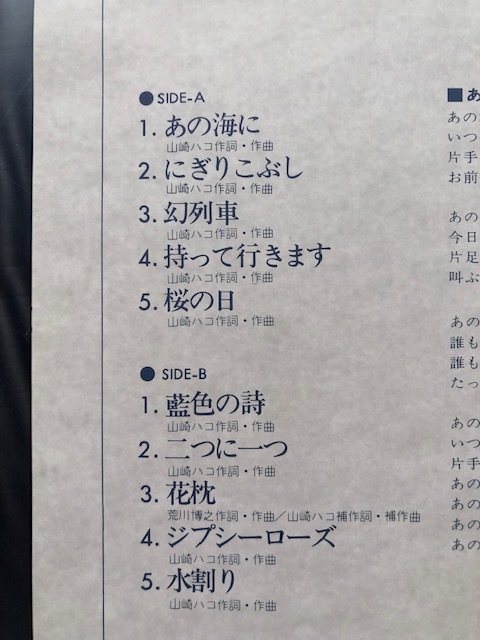 ● SIDE-A
1. あの海に
山崎ハコ作詞・作曲
2. にぎりこぶし
山崎ハコ作詞・作曲
3. 幻列車
山崎ハコ作詞・作曲
4. 持って行きます
山崎ハコ作詞・作曲
5. 桜の日
山崎ハコ作詞・作曲
● SIDE-B
1. 藍色の詩
山崎ハコ作詞・作曲
2. 二つに一つ
山崎ハコ作詞・作曲
3. 花枕
荒川博之作詞・作曲／山崎ハコ補作詞・補作曲
4. ジプシーローズ
山崎ハコ作詞・作曲
5. 水割り
山崎ハコ作詞・作曲
■ あ
あの
いつ
片手
お前
あの
今日
片足
叫ぶ
あの
誰も
誰も
たっ
あの
いつ
片手
あの
あの
あの
あの